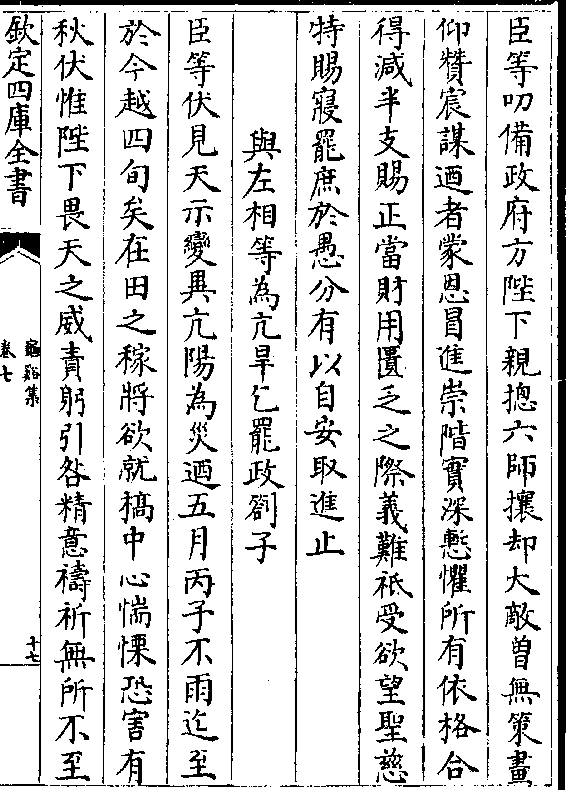 臣等叨備政府方陛下親揔六師攘却大敵曽無策畫
仰贊宸謀迺者蒙恩冒進崇階實深慙懼所有依格合
得減半支賜正當財用匱乏之際義難祇受欲望聖慈
特賜寢罷庶於愚分有以自安取進止
與左相等為亢旱乞罷政劄子
臣等伏見天示變異亢陽為災迺五月丙子不雨迄至
於今越四旬矣在田之稼將欲就槁中心惴慄恐害有
秋伏惟陛下畏天之威責躬引咎精意禱祈無所不至
欽定四庫全書
龜谿集
卷七
十七